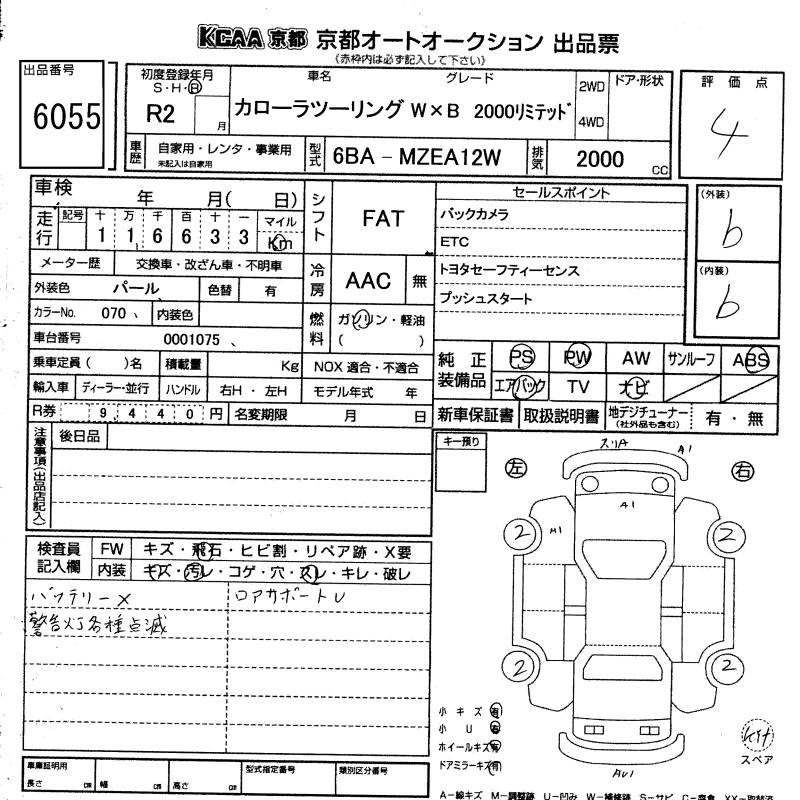 KCAA 京都 京都オートオークション 出品票
(赤枠内は必ず記入して下さい)
出品番号
6055
初度登録年月
S・H・R
R2 月
車名 グレード
カローラツーリング W×B 2000リミテッド
2WD
4WD
ドア・形状
評価点
4
車歴
自家用・レンタ・事業用
未記入は自家用
型式
6BA - MZEA12W
排気
2000 CC
車検 年 月( 日)
走行
記号 十 万 千 百 十 一 マイル
1 1 6 6 3 3 Km
シフト
FAT
セールスポイント
バックカメラ
ETC
トヨタセーフティーセンス
プッシュスタート
(外装)
b
(内装)
b
メーター歴 交換車・改ざん車・不明車
外装色 パール 色替 有
冷房
AAC 無
カラーNo. 070 内装色
燃料
ガソリン・軽油
( )
車台番号 0001075
乗車定員( )名 積載量 Kg NOX 適合・不適合
輸入車 ディーラー・並行 ハンドル 右H・左H モデル年式 年
R券 9440円 名変期限 月 日
純正装備品
PS PW AW サンルーフ ABS
エアバック TV ナビ
新車保証書 取扱説明書 地デジチューナー(社外品も含む) 有・無
注意事項(出品店記入)
後日品
キー預り
左
右
スリA
A1
A1
M1
2
2
2
2
AU1
検査員記入欄
FW キズ・飛石・ヒビ割・リペア跡・X要
内装 キズ・汚レ・コゲ・穴・スレ・キレ・破レ
バッテリーX
ロアサポートU
警告灯各種点滅
小キズ 有
小U 有
ホイールキズ 有
ドアミラーキズ 有
Kit
スペア
車庫証明用
長さ cm 幅 cm 高さ cm
型式指定番号
類別区分番号
A-線キズ M-調整跡 U-凹み W-補修跡 S-サビ C-腐食 XX-取替済